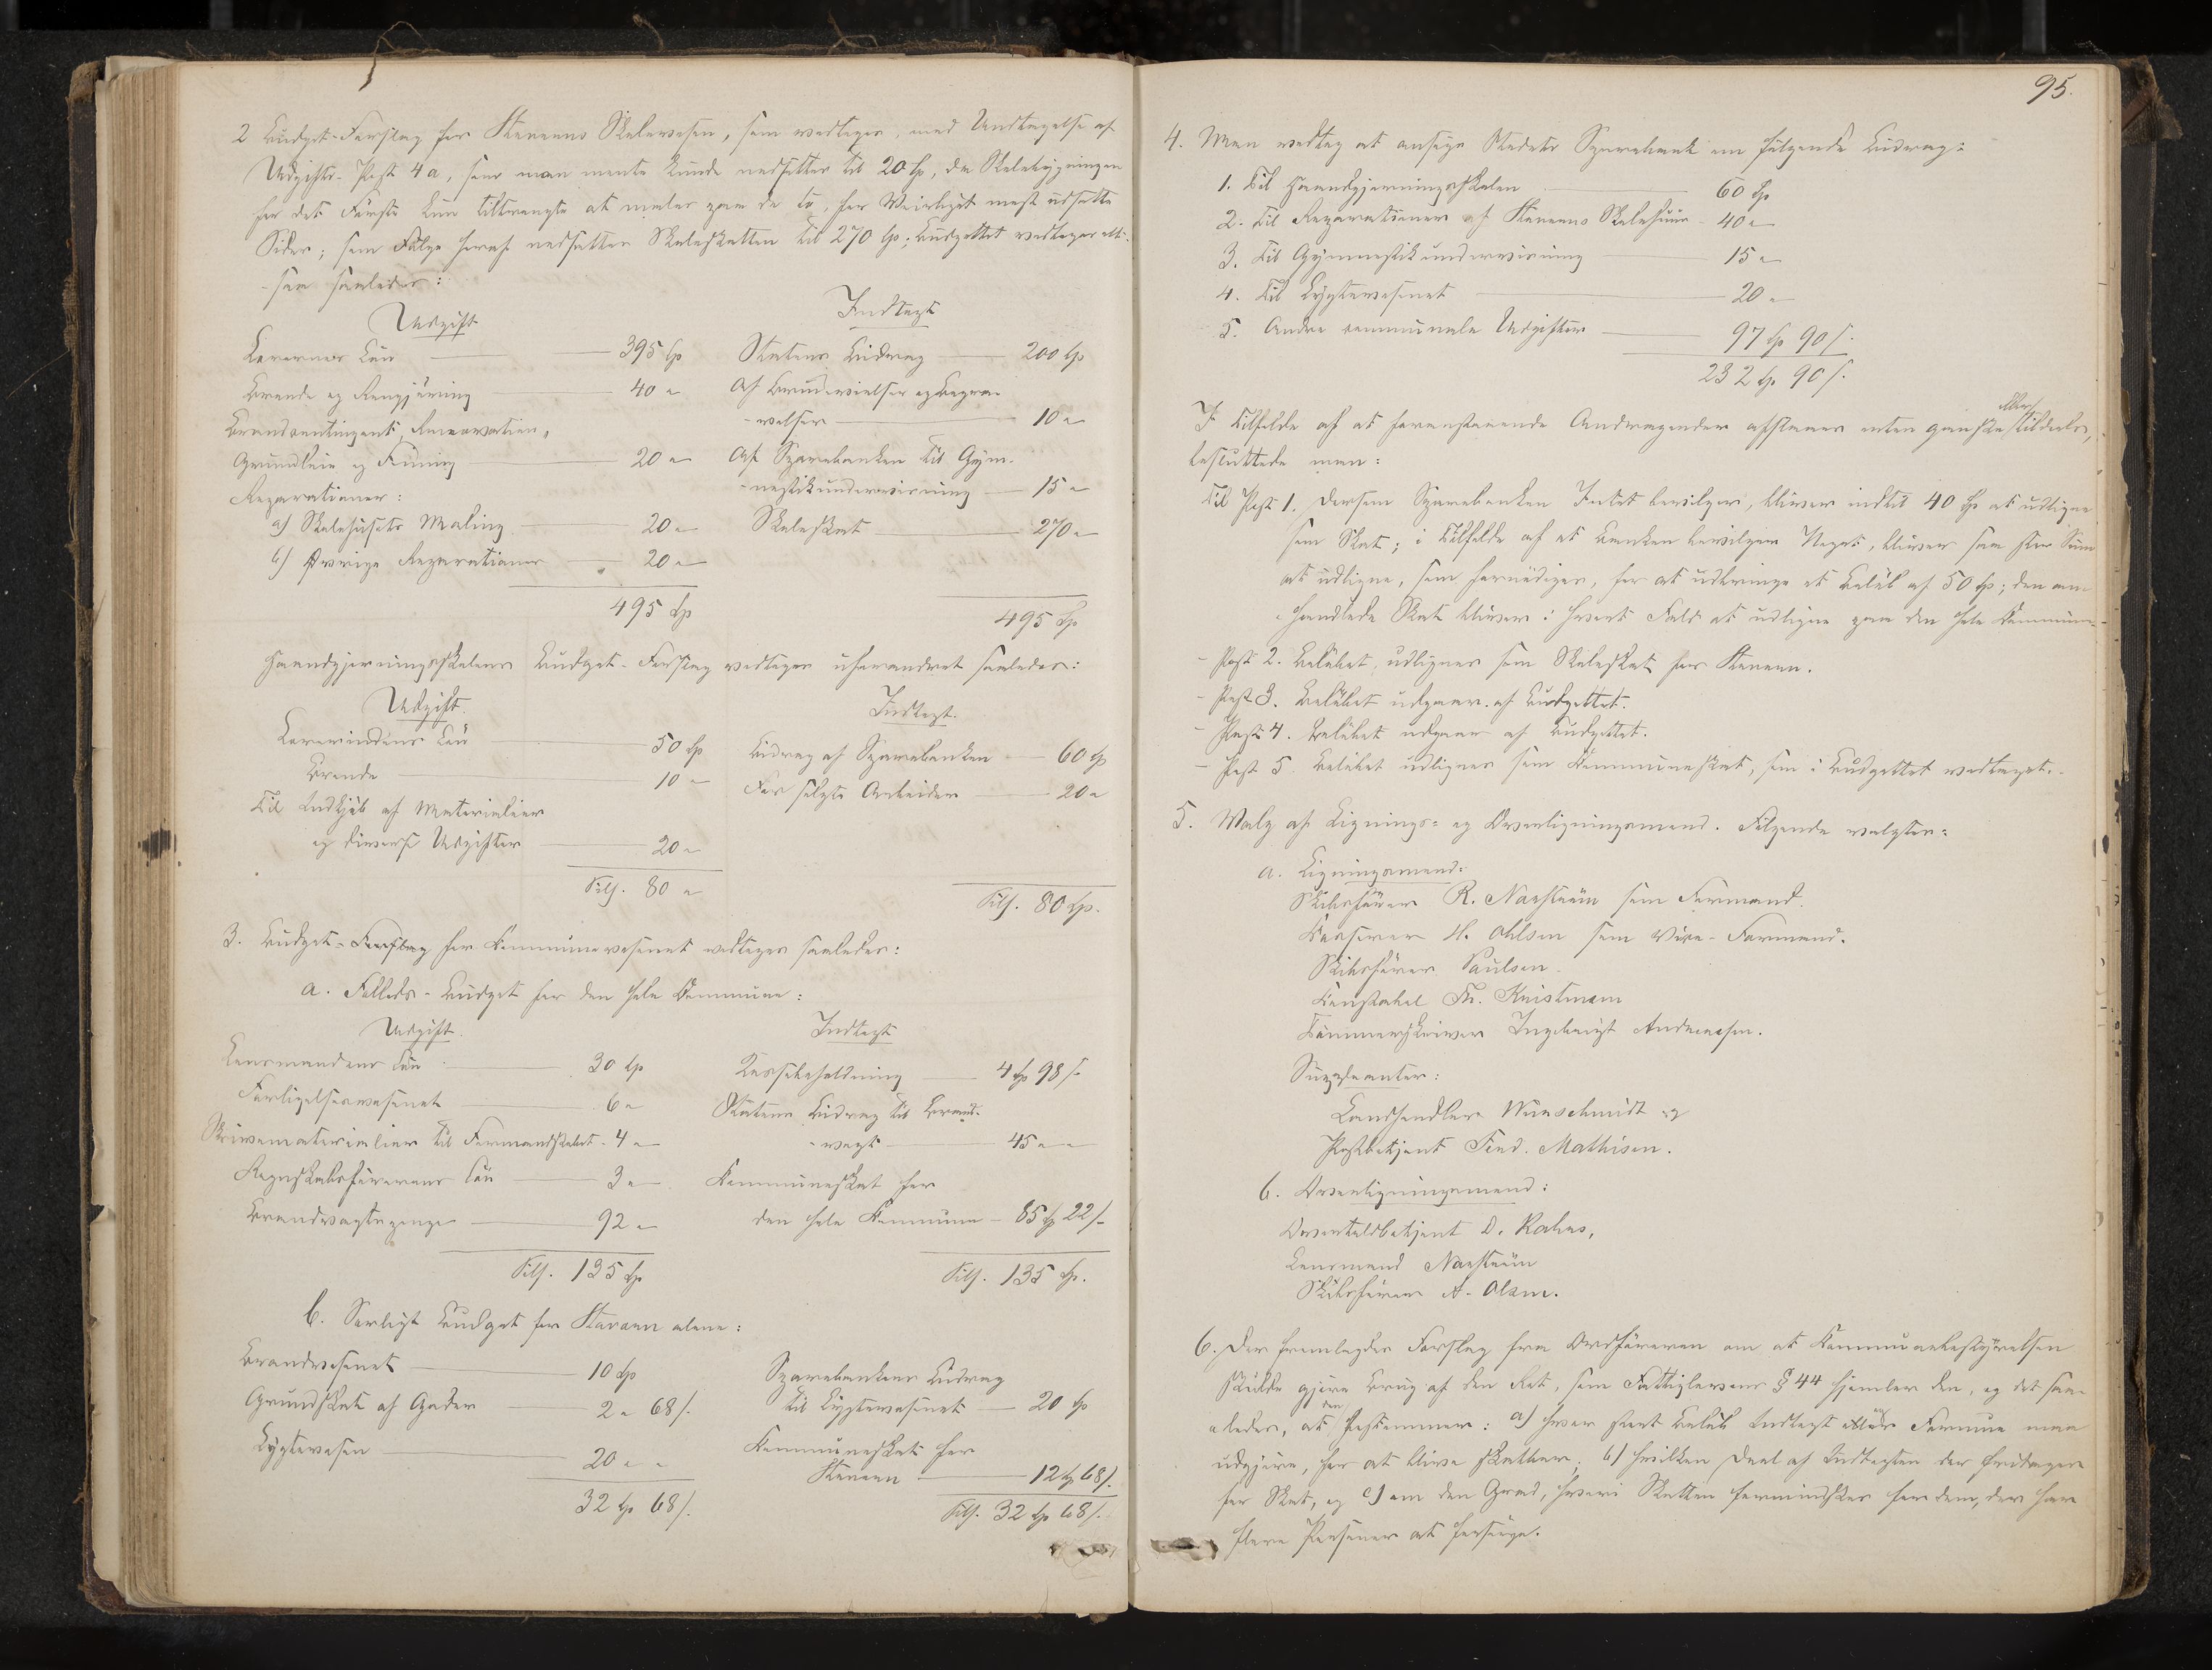 2 Budget-Forslag for Stavern Skolevæsen, som vedtages, med Undtagelse af
Udgifts-Post 4a, som man mente kunde nedsættes til 20 Sp, da Skolebygningen
for det Første kun tiltrængte at males paa de to, for Veirliget mest udsatte
Sider; som Følge heraf nedsættes Skoleskatten til 270 Sp; Budgettet vedtages alt-
-saa saaledes:
Udgift
Indtægt
Lærernes Løn 395 Sp
Statens Bidrag 200 Sp
Brænde og Rengjøring 40 "
Af Brudevielser og Begra-
-velser 10 "
Brandcontingent, Renovation,
Grundleie og Feining 20 "
Af Sparebanken til Gym-
-nastikundervisning 15 "
Reparationer:
a) Skolehusets Maling 20 "
Skoleskat 270 "
b) Øvrige Reparationer 20 "
495 Sp
495 Sp
Haandgjerningsskolens Budget-Forslag vedtages uforandret saaledes:
Udgift.
Indtægt.
Lærerindens Løn 50 Sp
Bidrag af Sparebanken 60 Sp
Brænde 10 "
For solgte Arbeider 20 "
Til Indkjøb af Materialier
og diverse Udgifter 20 "
Tils. 80 "
Tils. 80 Sp.
3. Budget-Forslag for Kommunevæsenet vedtages saaledes:
a. Fælleds-Budget for den hele Kommune:
Udgift.
Indtægt
Lensmandens Løn 30 Sp
Kassebeholdning 4 Sp 98 s.
Forligelsesvæsenet 6 "
Statens Bidrag til Brand-
-vagt 45 " "
Skrivematerialier til Formandskabet - 4 "
Regnskabsførerens Løn 3 "
Kommuneskat for
den hele Kommune - 85 Sp 22 s.
Brandvagtspenge 92 "
Tils. 135 Sp
Tils. 135 Sp.
b. Særligt Budget for Stavern alene:
Brandvæsenet 10 Sp
Sparebankens Bidrag
til Lygtevæsenet 20 Sp
Grundskat af Gader 2 " 68 s.
Lygtevæsen 20 " "
Kommuneskat for
Stavern 12 Sp 68 s.
32 Sp 68 s.
Tils. 32 Sp 68 s.
95.
4. Man vedtog at ansøge Stedets Sparebank om følgende Bidrag:
1. Til Haandgjerningsskolen 60 Sp
2. Til Reparationer af Staverns Skolehuus - 40 "
3. Til Gymnastikundervisning 15 "
4. Til Lygtevæsenet 20 "
5. Andre communale Udgifter 97 Sp 90 s.
232 Sp 90 s.
I Tilfælde af at foranstaaende Andragender afslaaes enten ganske eller tildeels,
besluttede man:
Til Post 1. Dersom Sparebanken Intet bevilger, bliver indtil 40 Sp at udligne
som Skat; i Tilfælde af at Banken bevilger Noget, bliver saa stor Sum
at udligne, som fornødiges, for at udbringe et Beløb af 50 Sp; den om-
handlede Skat bliver i hvert Fald at udligne paa den hele Kommune.
- Post 2. Beløbet udlignes som Skoleskat for Stavern.
- Post 3. Beløbet udgaar af Budgettet.
- Post 4. Beløbet udgaar af Budgettet.
- Post 5. Beløbet udlignes som Kommuneskat, som i Budgettet vedtaget.
5. Valg af Lignings- og Overligningsmænd. Følgende valgtes:
a. Ligningsmænd:
Skibsfører R. Narstrøm som Formand.
Kasserer H. Ohlsen som Vice-Formand.
Skibsfører Paulsen.
Konstabel Fr. Kristensen
Tømmerskriver Ingebrigt Andreassen.
Suppleanter:
Landhandler Wünschmidt og
Postbetjent Ferd. Mathisen.
b. Overligningsmænd:
Overtoldbetjent D. Rahrs,
Lensmand Narstrøm
Skibsfører A. Olsen.
6. Der fremlagdes Forslag fra Ordføreren om at Kommunebestyrelsen
skulde gjøre Brug af den Ret, som Fattiglovens § 44 hjemler den, og det saa-
-ledes, at den bestemmer: a) hvor stort Beløb Indtægt eller Formue maa
udgjøre, for at blive skatbar; b) hvilken Deel af Indtægten der fritages
for Skat, og c) om den Grad, hvori Skatten formindskes for dem, der har
flere Personer at forsørge.